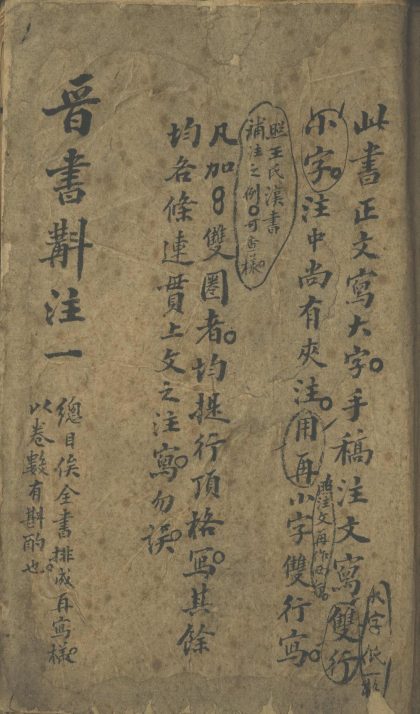 此書正文寫大字。手稿注文寫雙行
大字低
小字。注中尚有夾注。用再小字雙行寫。
照注文再作
照王氏漢書
補注之例。可查樣
凡加8雙圈者。均提行頂格寫。其餘
均各條連貫上文之注寫。勿誤。
晉書斠注一
總目俟全書排成再寫樣。
以卷數有斟酌也。